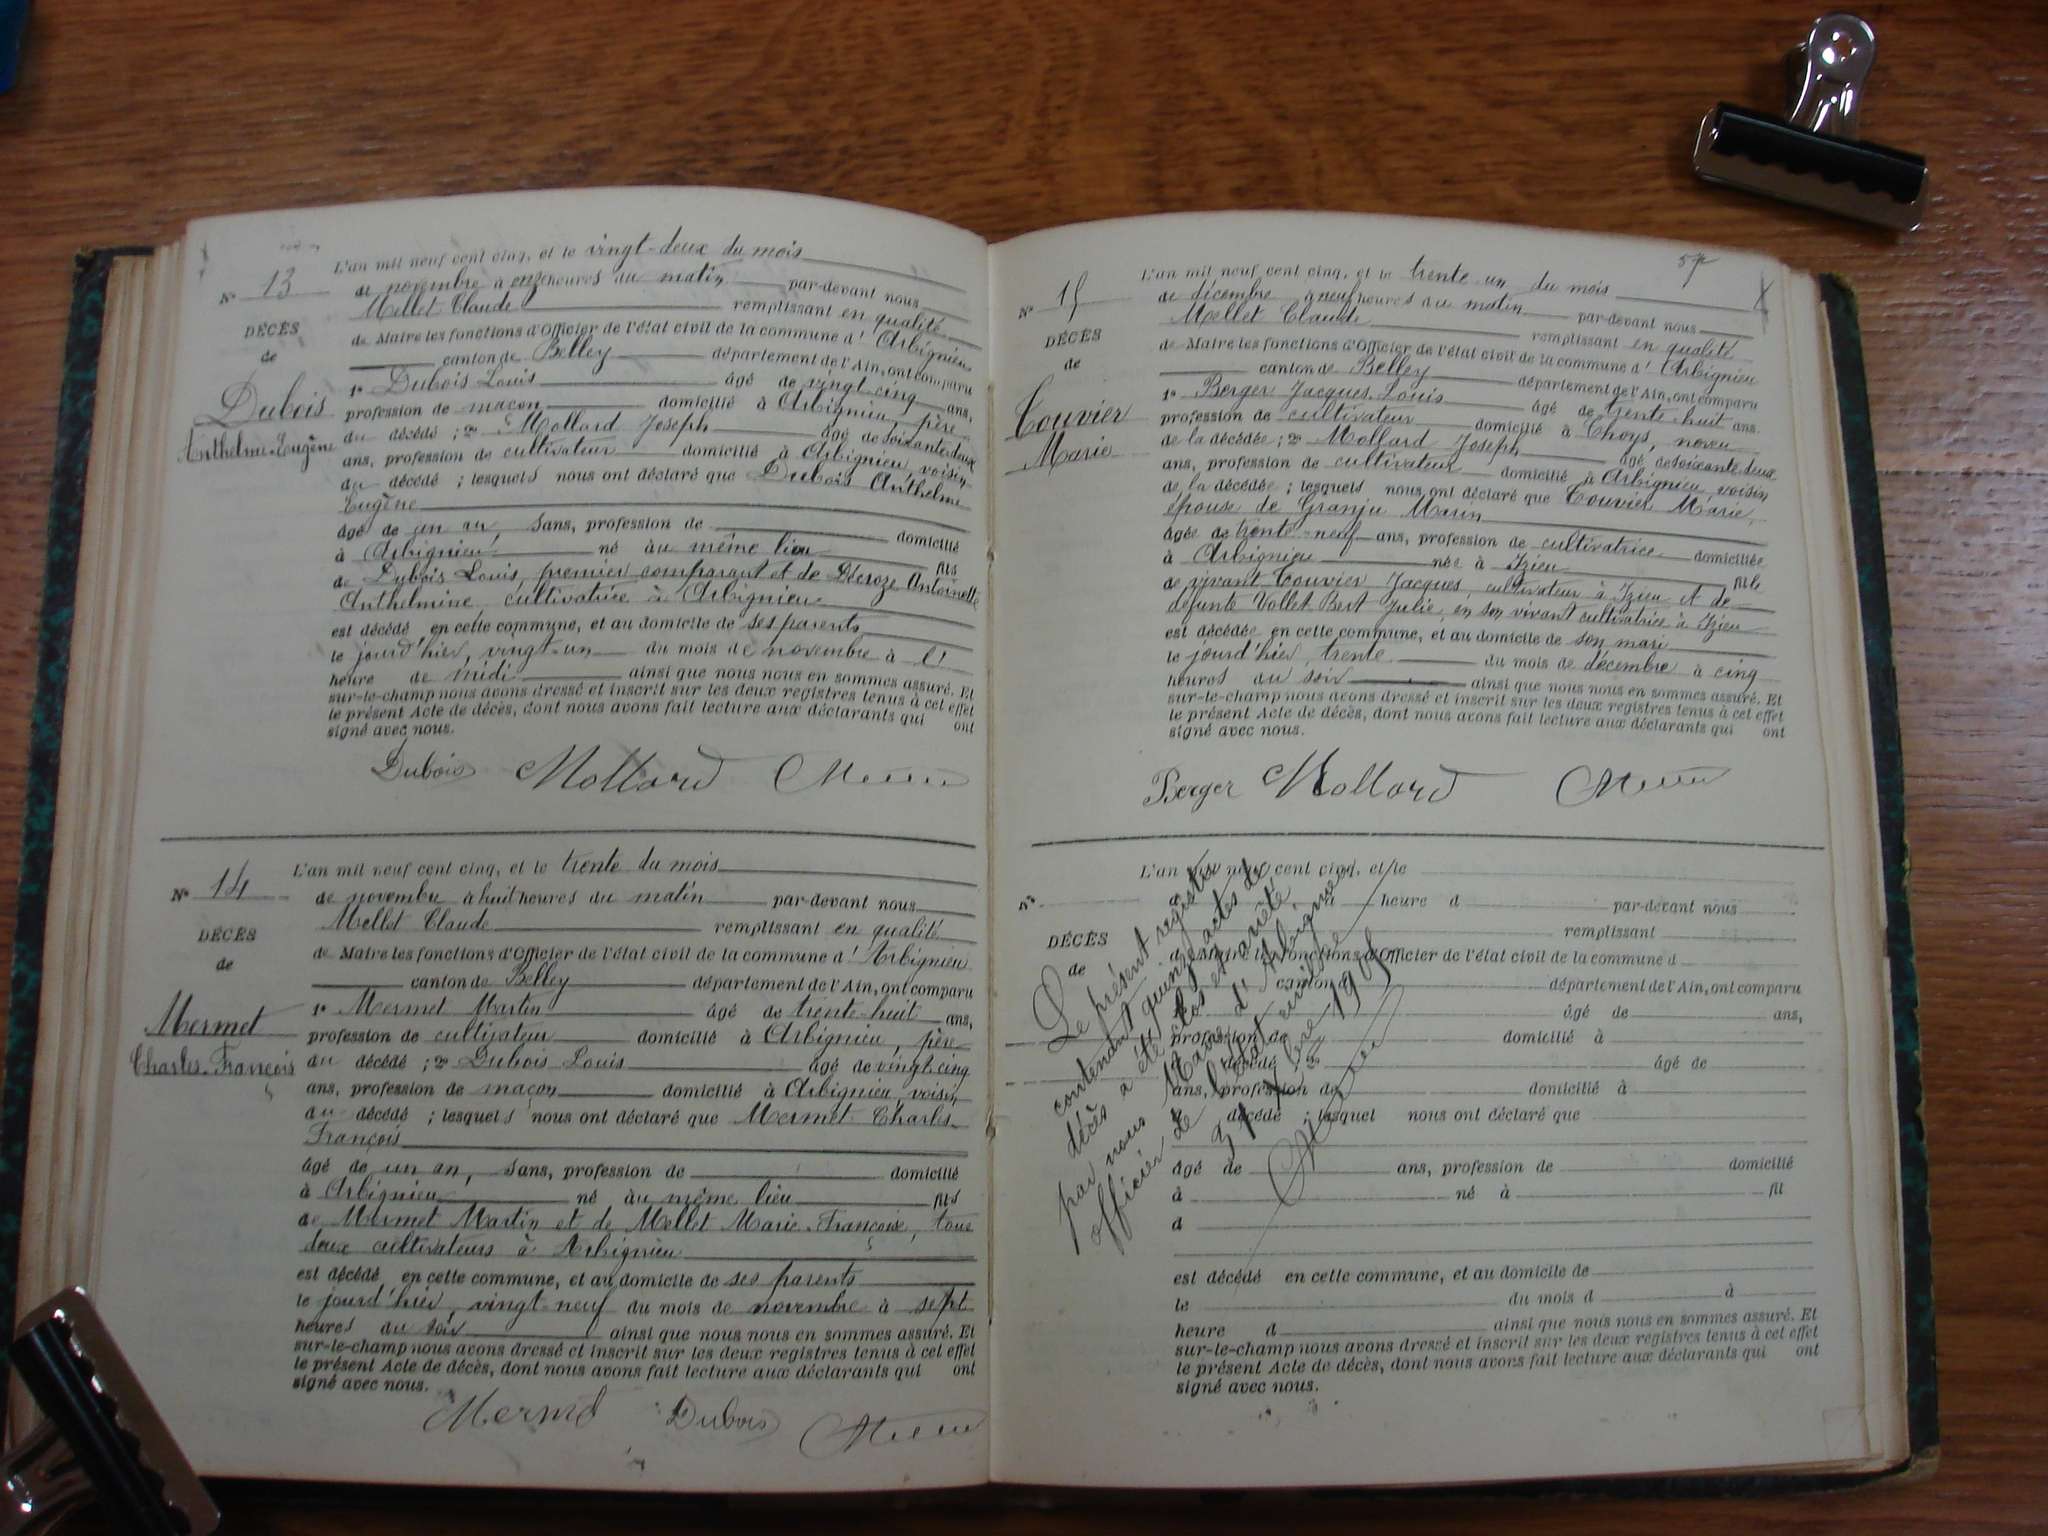 L'an mil neuf cent cinq, et le vingt-deux du mois
N° 13
de novembre à onze heures du matin par-devant nous
Mellet Claude remplissant en qualité
DÉCÈS
de Maire les fonctions d'Officier de l'état civil de la commune d'Arbignieu
de
canton de Belley département de l'Ain, ont comparu
1° Dubois Louis âgé de vingt-cinq ans,
Dubois
profession de maçon domicilié à Arbignieu, père
Anthelme-Eugène
du décédé ; 2° Mollard Joseph âgé de soixante-deux
ans, profession de cultivateur domicilié à Arbignieu, voisin
du décédé ; lesquels nous ont déclaré que Dubois Anthelme
Eugène
âgé de un an, sans, profession de domicilié
à Arbignieu né au même lieu fils
de Dubois Louis, premier comparant et de Déeroze Antoinette
Anthelmine, cultivatrice à Arbignieu
est décédé en cette commune, et au domicile de ses parents
le jourd'hier, vingt-un du mois de novembre à l'
heure de midi ainsi que nous nous en sommes assuré. Et
sur-le-champ nous avons dressé et inscrit sur les deux registres tenus à cet effet
le présent Acte de décès, dont nous avons fait lecture aux déclarants qui ont
signé avec nous.
Dubois Mollard
L'an mil neuf cent cinq, et le trente du mois
N° 14
de novembre à huit heures du matin par-devant nous
Mellet Claude remplissant en qualité
DÉCÈS
de Maire les fonctions d'Officier de l'état civil de la commune d'Arbignieu
de
canton de Belley département de l'Ain, ont comparu
1° Mermet Martin âgé de trente-huit ans,
Mermet
profession de cultivateur domicilié à Arbignieu, père
Charles-François
du décédé ; 2° Dubois Louis âgé de vingt-cinq
ans, profession de maçon domicilié à Arbignieu, voisin
du décédé ; lesquels nous ont déclaré que Mermet Charles
François
âgé de un an, sans, profession de domicilié
à Arbignieu né au même lieu fils
de Mermet Martin et de Mellet Marie-Françoise, tous
deux cultivateurs à Arbignieu
est décédé en cette commune, et au domicile de ses parents
le jourd'hier, vingt-neuf du mois de novembre à sept
heures du soir ainsi que nous nous en sommes assuré. Et
sur-le-champ nous avons dressé et inscrit sur les deux registres tenus à cet effet
le présent Acte de décès, dont nous avons fait lecture aux déclarants qui ont
signé avec nous.
Mermet Dubois
57
L'an mil neuf cent cinq, et le trente-un du mois
N° 15
de décembre à neuf heures du matin par-devant nous
Mellet Claude remplissant en qualité
DÉCÈS
de Maire les fonctions d'Officier de l'état civil de la commune d'Arbignieu
de
canton de Belley département de l'Ain, ont comparu
1° Berger Jacques-Louis âgé de trente-huit ans.
Couvier
profession de cultivateur domicilié à Choys, neveu
Marie
de la décédée ; 2° Mollard Joseph âgé de soixante-deux
ans, profession de cultivateur domicilié à Arbignieu, voisin
de la décédée ; lesquels nous ont déclaré que Couvier Marie,
épouse de Granju Marin
âgée de trente-neuf ans, profession de cultivatrice domiciliée
à Arbignieu née à Izieu fille
de vivant Couvier Jacques, cultivateur à Izieu et de
défunte Vollet Bert Julie, en son vivant cultivatrice à Izieu
est décédée en cette commune, et au domicile de son mari
le jourd'hier, trente du mois de décembre à cinq
heures du soir ainsi que nous nous en sommes assuré. Et
sur-le-champ nous avons dressé et inscrit sur les deux registres tenus à cet effet
le présent Acte de décès, dont nous avons fait lecture aux déclarants qui ont
signé avec nous.
Berger Mollard
L'an mil neuf cent cinq, et le
N° heure d par-devant nous
remplissant
DÉCÈS
d Maire les fonctions d'Officier de l'état civil de la commune d
de
canton département de l'Ain, ont comparu
1° âgé de ans,
profession de domicilié à
décédé ; 2° âgé de
ans, profession de domicilié à
décédé ; lesquel nous ont déclaré que
âgé de ans, profession de domicilié
à né à fil
d
est décédé en cette commune, et au domicile de
le du mois d à
heure d ainsi que nous nous en sommes assuré. Et
sur-le-champ nous avons dressé et inscrit sur les deux registres tenus à cet effet
le présent Acte de décès, dont nous avons fait lecture aux déclarants qui ont
signé avec nous.
Le présent registre
contenant quinze actes de
décès a été clos et arrêté
par nous Maire d'Arbignieu
officier de l'état civil le
31 Xbre 1905